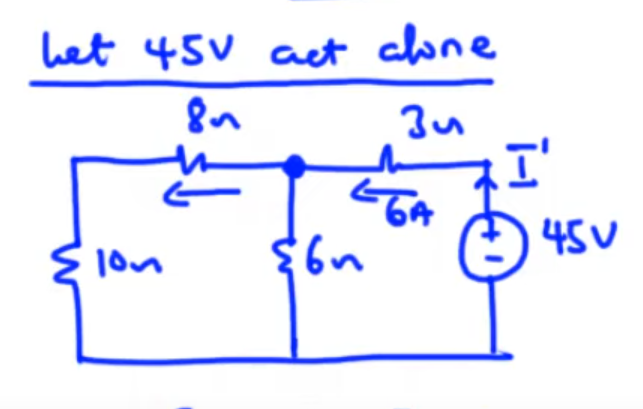 Let 45V act alone
8Ω
3Ω
I'
6A
10Ω
6Ω
+
-
45V